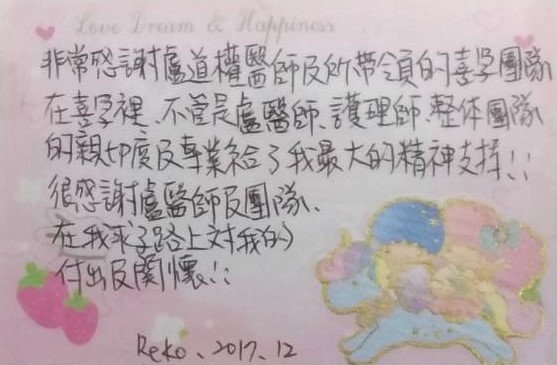 Love Dream & Happiness
非常感謝盧道權醫師及所帶領的喜孕團隊
在喜孕裡、不管是盧醫師、護理師、整体團隊
的親切度及專業給了我最大的精神支持!!
很感謝盧醫師及團隊、
在我求子路上对我的
付出及關懷!!
Reko、2017、12